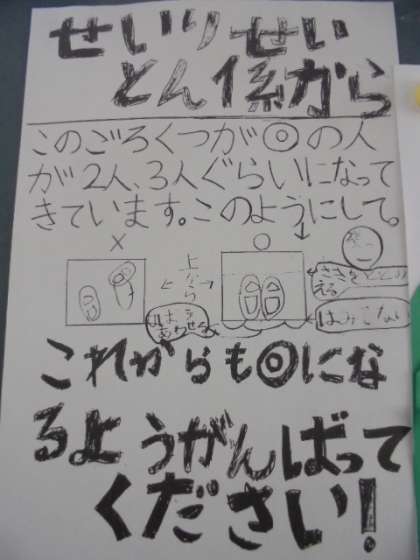 せいりせい
とん係から
このごろくつが◎の人
が2人、3人ぐらいになって
きています。このようにして。
×
○
上から
さきをととの
える
はみでない
これからも◎にな
るようがんばって
ください!